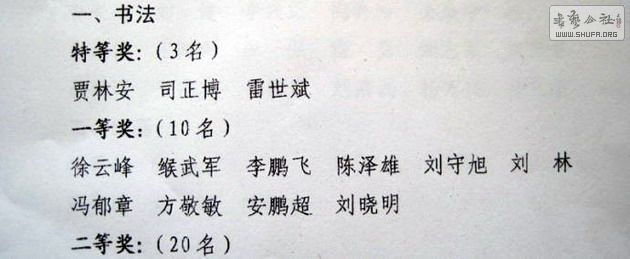 一、书法
特等奖:(3名)
贾林安 司正博 雷世斌
一等奖:(10名)
徐云峰 缑武军 李鹏飞 陈泽雄 刘守旭 刘 林
冯郁章 方敬敏 安鹏超 刘晓明
二等奖:(20名)
书艺公社
WWW.SHUFA.ORG